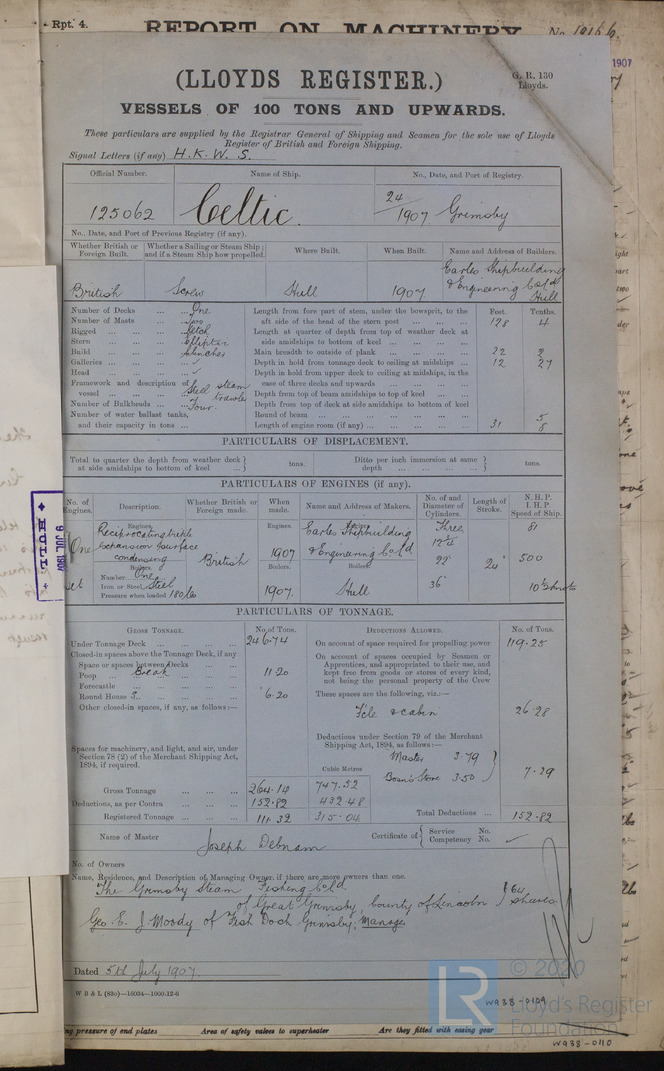 Rpt. 4.
REPORT ON MACHINERY No. 19166.
1907
(LLOYDS REGISTER.)
G. R. 130
Lloyds.
VESSELS OF 100 TONS AND UPWARDS.
These particulars are supplied by the Registrar General of Shipping and Seamen for the sole use of Lloyds
Register of British and Foreign Shipping.
Signal Letters (if any) H.K.W.S.
Official Number. Name of Ship. No., Date, and Port of Registry.
125062 Celtic. 24/1907 Grimsby
No., Date, and Port of Previous Registry (if any).
Whether British or Foreign Built. Whether a Sailing or Steam Ship; and if a Steam Ship how propelled. Where Built. When Built. Name and Address of Builders.
British Screw Hull 1907 Earles Shipbuilding & Engineering Co Ld Hull
Number of Decks ... ... One Length from fore part of stem, under the bowsprit, to the Feet. Tenths.
Number of Masts ... ... Two aft side of the head of the stern post ... ... ... 128 4
Rigged ... ... ... Ketch Length at quarter of depth from top of weather deck at
Stern ... ... ... Elliptic side amidships to bottom of keel ... ... ...
Build ... ... ... Clenches Main breadth to outside of plank ... ... ... 22 2
Galleries ... ... ... ✓ Depth in hold from tonnage deck to ceiling at midships ... 12 27
Head ... ... ... ✓ Depth in hold from upper deck to ceiling at midships, in the
Framework and description of case of three decks and upwards ... ... ...
vessel ... ... ... Steel steam trawler Depth from top of beam amidships to top of keel ... ...
Number of Bulkheads ... ... Four. Depth from top of deck at side amidships to bottom of keel
Number of water ballast tanks, Round of beam ... ... ... 5
and their capacity in tons ... Length of engine room (if any) ... ... ... 31 8
PARTICULARS OF DISPLACEMENT.
Total to quarter the depth from weather deck } tons. Ditto per inch immersion at same } tons.
at side amidships to bottom of keel ... depth ... ... ...
PARTICULARS OF ENGINES (if any).
No. of Engines. Description. Whether British or Foreign made. When made. Name and Address of Makers. No. of and Diameter of Cylinders. Length of Stroke. N.H.P. I.H.P. Speed of Ship.
Engines. Engines. Engines.
One Reciprocating triple expansion surface condensing British 1907 Earles Shipbuilding & Engineering Co Ld Three 81
22" 24" 500
Boilers. Boilers. Boilers.
Number One
Iron or Steel Steel 1907. Hull 36"
Pressure when loaded 180 lbs
9 JUL 190
HULL
PARTICULARS OF TONNAGE.
GROSS TONNAGE. No. of Tons. DEDUCTIONS ALLOWED. No. of Tons.
Under Tonnage Deck ... ... ... 246.74 On account of space required for propelling power 119.25
Closed-in spaces above the Tonnage Deck, if any On account of spaces occupied by Seamen or
Space or spaces between Decks ... ... Apprentices, and appropriated to their use, and
Poop ... Break ... ... 11.20 kept free from goods or stores of every kind,
Forecastle ... ... ... not being the personal property of the Crew
Round House s ... ... ... 6.20 These spaces are the following, viz.:—
Other closed-in spaces, if any, as follows:— F'cle & cabin 26.28
Deductions under Section 79 of the Merchant
Shipping Act, 1894, as follows:—
Spaces for machinery, and light, and air, under Master 3.79
Section 78 (2) of the Merchant Shipping Act,
1894, if required. Cubic Metres Bosn's Store 3.50 } 7.29
Gross Tonnage ... ... ... 264.14 747.52
Deductions, as per Contra ... ... ... 152.82 432.48
Registered Tonnage ... ... ... 111.32 315.04 Total Deductions ... 152.82
Name of Master Joseph Debnam Certificate of { Service No.
Competency No. ✓
No. of Owners
Name, Residence, and Description of Managing Owner if there are more owners than one.
The Grimsby Steam Fishing Co Ld.
of Great Grimsby, County of Lincoln } 64 shares
Geo. E. J. Moody of Fish Dock Grimsby, Manager
Dated 5th July 1907.
W B & L (83o)—16034—1000-12-6
W938-0109
© 2020
LR Lloyd's Register
Foundation
ng pressure of end plates Area of safety valves to superheater Are they fitted with easing gear
W938-0110